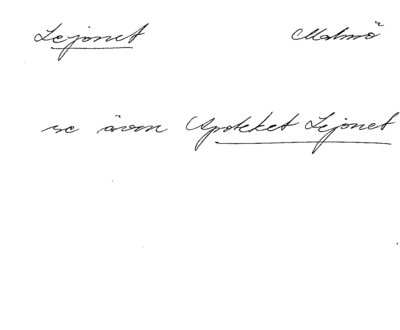 Lejonet Malmö
se även Apoteket Lejonet